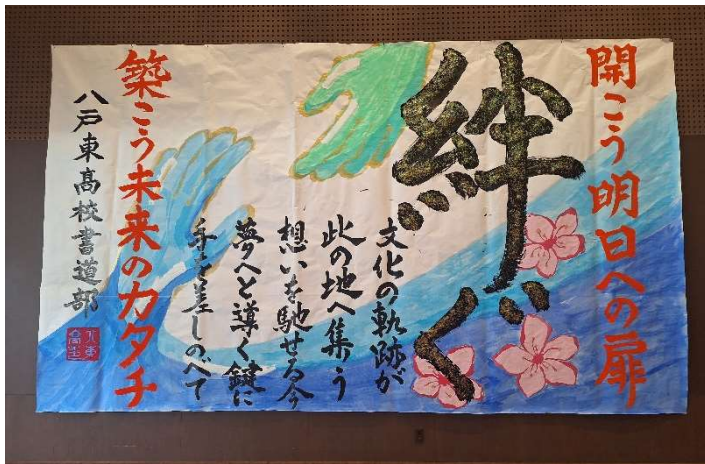 開こう明日への扉
絆ぐ
文化の軌跡が
此の地へ集う
想いを馳せる今
夢へと導く鍵に
手を差しのべて
築こう未来のカタチ
八戸東高校書道部